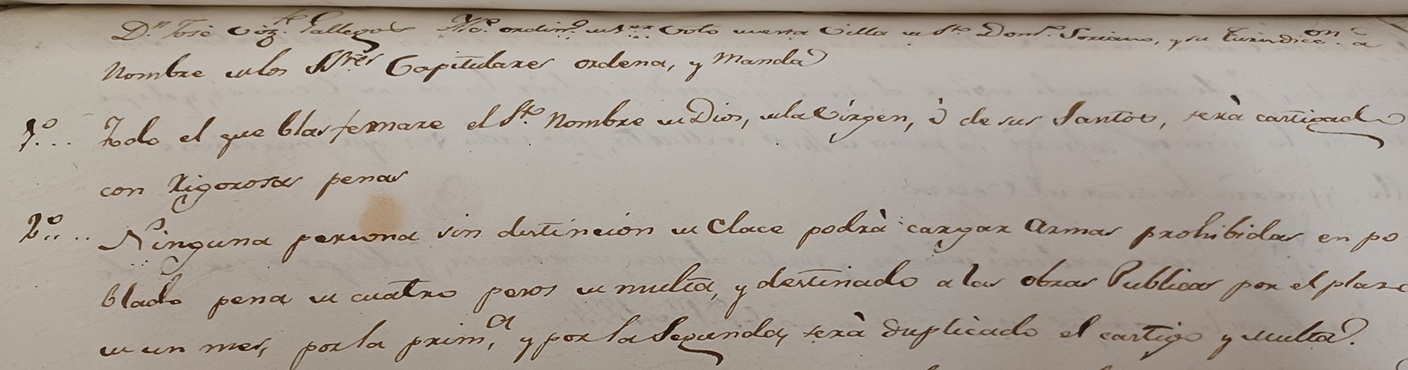 Dn. José Gallegos Alce. ordino. de 1er Voto de esta Villa de Sto. Domo. Soriano, y su Jurisdicon. a
Nombre de los SSres Capitulares ordena, y Manda
1º... Todo el que blasfemare el Sto. Nombre de Dios, de la Virgen, ô de sus Santos, serà castigado
con rigorosas penas
2º... Ninguna persona sin distincion de Clace podrà cargar Armas prohibidas en po
blado pena de cuatro pesos de multa, y destinado a las obras Publicas por el plazo
de un mes, por la prim,a y por la Segunda, serà duplicado el castigo y multa.